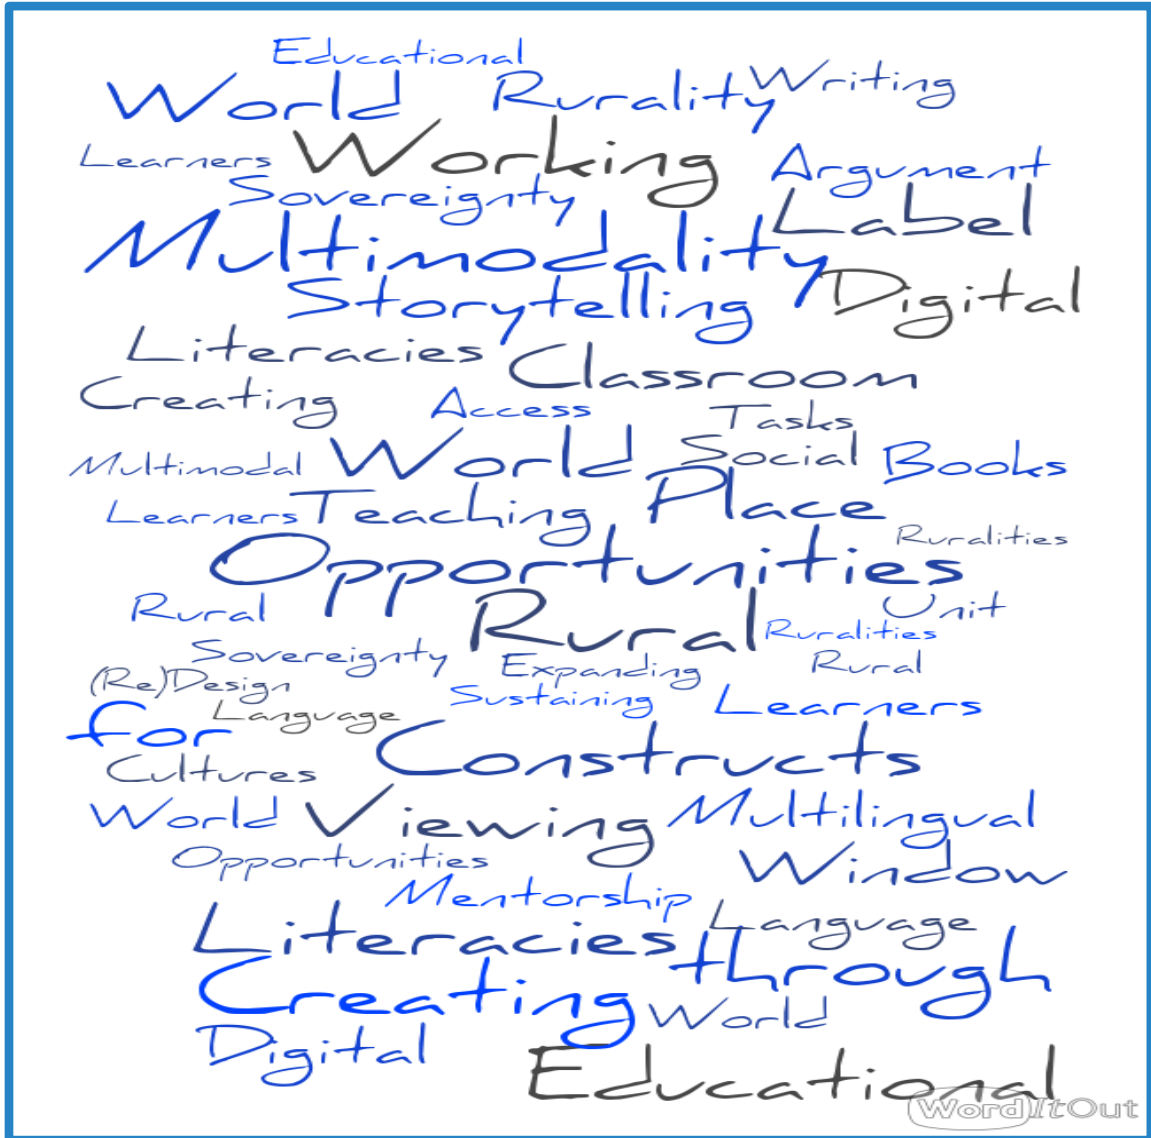 Educational
World Rurality Writing
Learners Working Argument
Sovereignty Label
Multimodality
Storytelling Digital
Literacies Classroom
Creating Access Tasks
Multimodal World Social Books
Learners Teaching Place
Opportunities Ruralities
Rural Rural Unit
Ruralities
Sovereignty Expanding Rural
(Re)Design Sustaining Learners
for Language
Constructs
Cultures
World Viewing Multilingual
Opportunities Window
Mentorship
Literacies Language
through
Creating World
Digital Educational
WordItOut